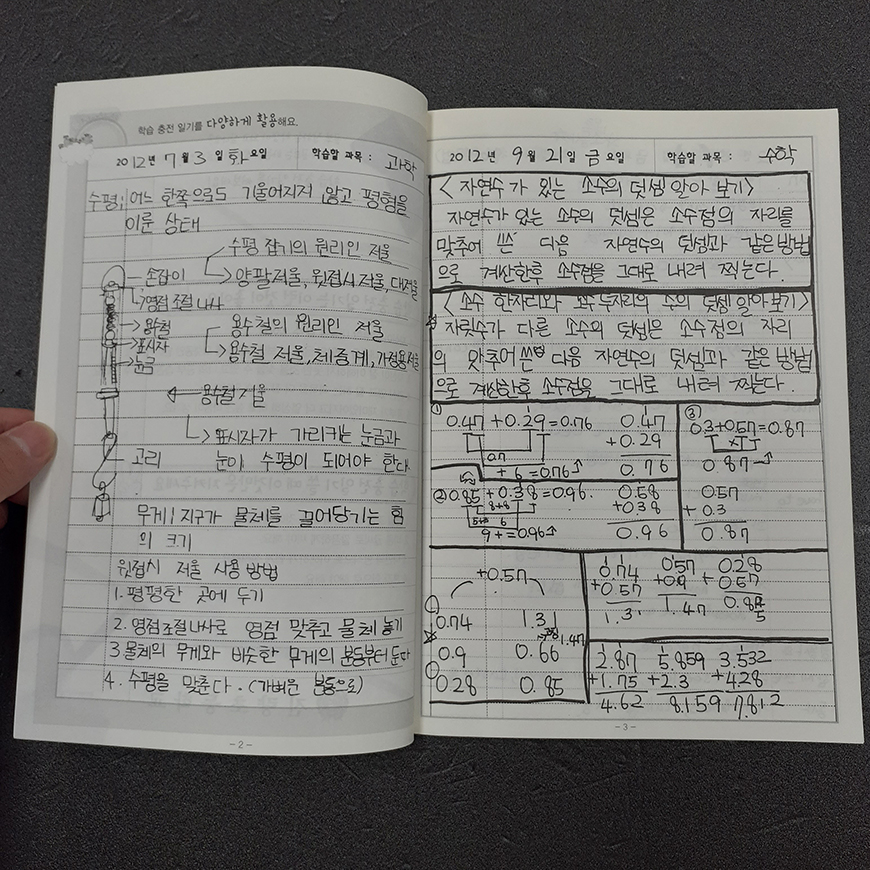 학습 충전 일기를 다양하게 활용해요.
2012년 7월 3일 화요일 학습할 과목 : 과학
수평; 어느 한쪽으로도 기울어지지 않고 평형을
이룬 상태
수평 잡기의 원리인 저울
손잡이
→양팔저울, 윗접시저울, 대저울
영점 조절 나사
용수철
용수철의 원리인 저울
표시자
→용수철 저울, 체중계, 가정용저울
눈금
용수철저울
→표시자가 가리키는 눈금과
고리
눈이 수평이 되어야 한다.
무게; 지구가 물체를 끌어당기는 힘
의 크기
윗접시 저울 사용 방법
1. 평평한 곳에 두기
2. 영점조절나사로 영점 맞추고 물체 놓기
3 물체의 무게와 비슷한 무게의 분동부터 둔다
4. 수평을 맞춘다. (가벼운 분동으로)
- 2 -
2012년 9월 21일 금요일 학습할 과목 : 수학
〈자연수가 있는 소수의 덧셈 알아 보기〉
자연수가 있는 소수의 덧셈은 소수점의 자리를
맞추어 쓴 다음 자연수의 덧셈과 같은 방법
으로 계산한후 소수점을 그대로 내려 찍는다.
〈소수 한자리와 소수 두자리의 수의 덧셈 알아보기〉
자릿수가 다른 소수의 덧셈은 소수점의 자리
의 맞추어 쓴 다음 자연수의 덧셈과 같은 방법
으로 계산한후 소수점을 그대로 내려 찍는다.
① 0.47+0.29=0.76
0.7
+6=0.76
0.47
+0.29
0.76
③ 0.3+0.57=0.87
0.87
0.57
+0.3
0.87
② 0.85+0.38=0.96.
8+8
6
9+=0.96
0.58
+0.38
0.96
+0.57
0.74 1.31
1.47
0.9 0.66
0.28 0.85
0.74
+0.57
1.31
0.57
+0.9
1.47
0.28
+0.57
0.85
2.87
+1.75
4.62
5.859
+2.3
8.159
3.532
+4.28
7.812
- 3 -